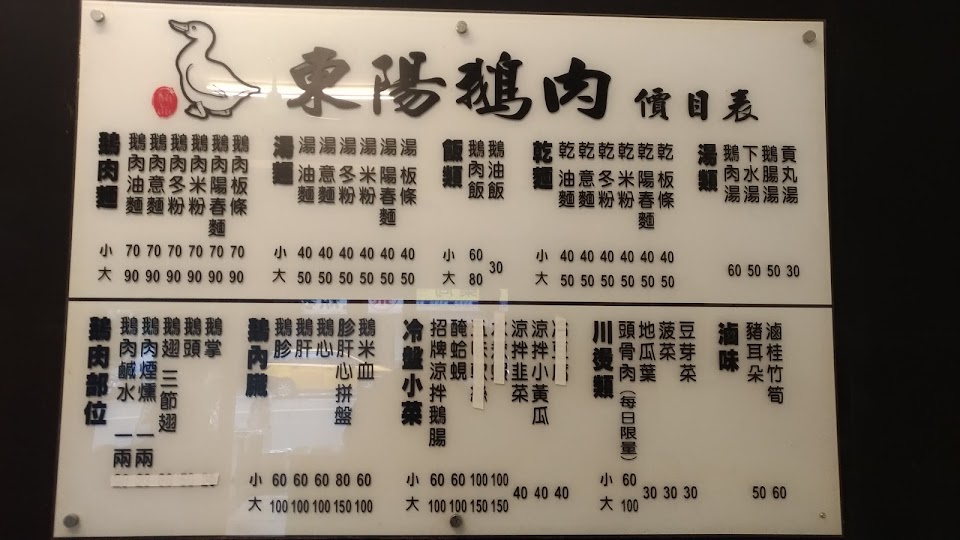 東陽鵝肉 價目表
鵝肉麵
鵝肉油麵 小70 大90
鵝肉意麵 70 90
鵝肉冬粉 70 90
鵝肉米粉 70 90
鵝肉陽春麵 70 90
鵝肉板條 70 90
湯麵
湯油麵 小40 大50
湯意麵 40 50
湯冬粉 40 50
湯米粉 40 50
湯陽春麵 40 50
湯板條 40 50
飯類
鵝肉飯 小60 大80
鵝油飯 30
乾麵
乾油麵 小40 大50
乾意麵 40 50
乾冬粉 40 50
乾米粉 40 50
乾陽春麵 40 50
乾板條 40 50
湯類
鵝肉湯 60
下水湯 50
鵝腸湯 50
貢丸湯 30
鵝肉部位
鵝肉鹹水 一兩
鵝肉煙燻 一兩
鵝翅 三節翅
鵝頭
鵝掌
鵝內臟
鵝胗 小60 大100
鵝肝 60 100
鵝心 60 100
胗肝心拼盤 80 150
鵝米血 60 100
冷盤小菜
招牌涼拌鵝腸 小60 大100
醃蛤蜆 60 100
100 150
100 150
涼拌韭菜 40
涼拌小黃瓜 40
40
川燙類
頭骨肉(每日限量) 小60 大100
地瓜葉 30
菠菜 30
豆芽菜 30
滷味
豬耳朵 50
滷桂竹筍 60